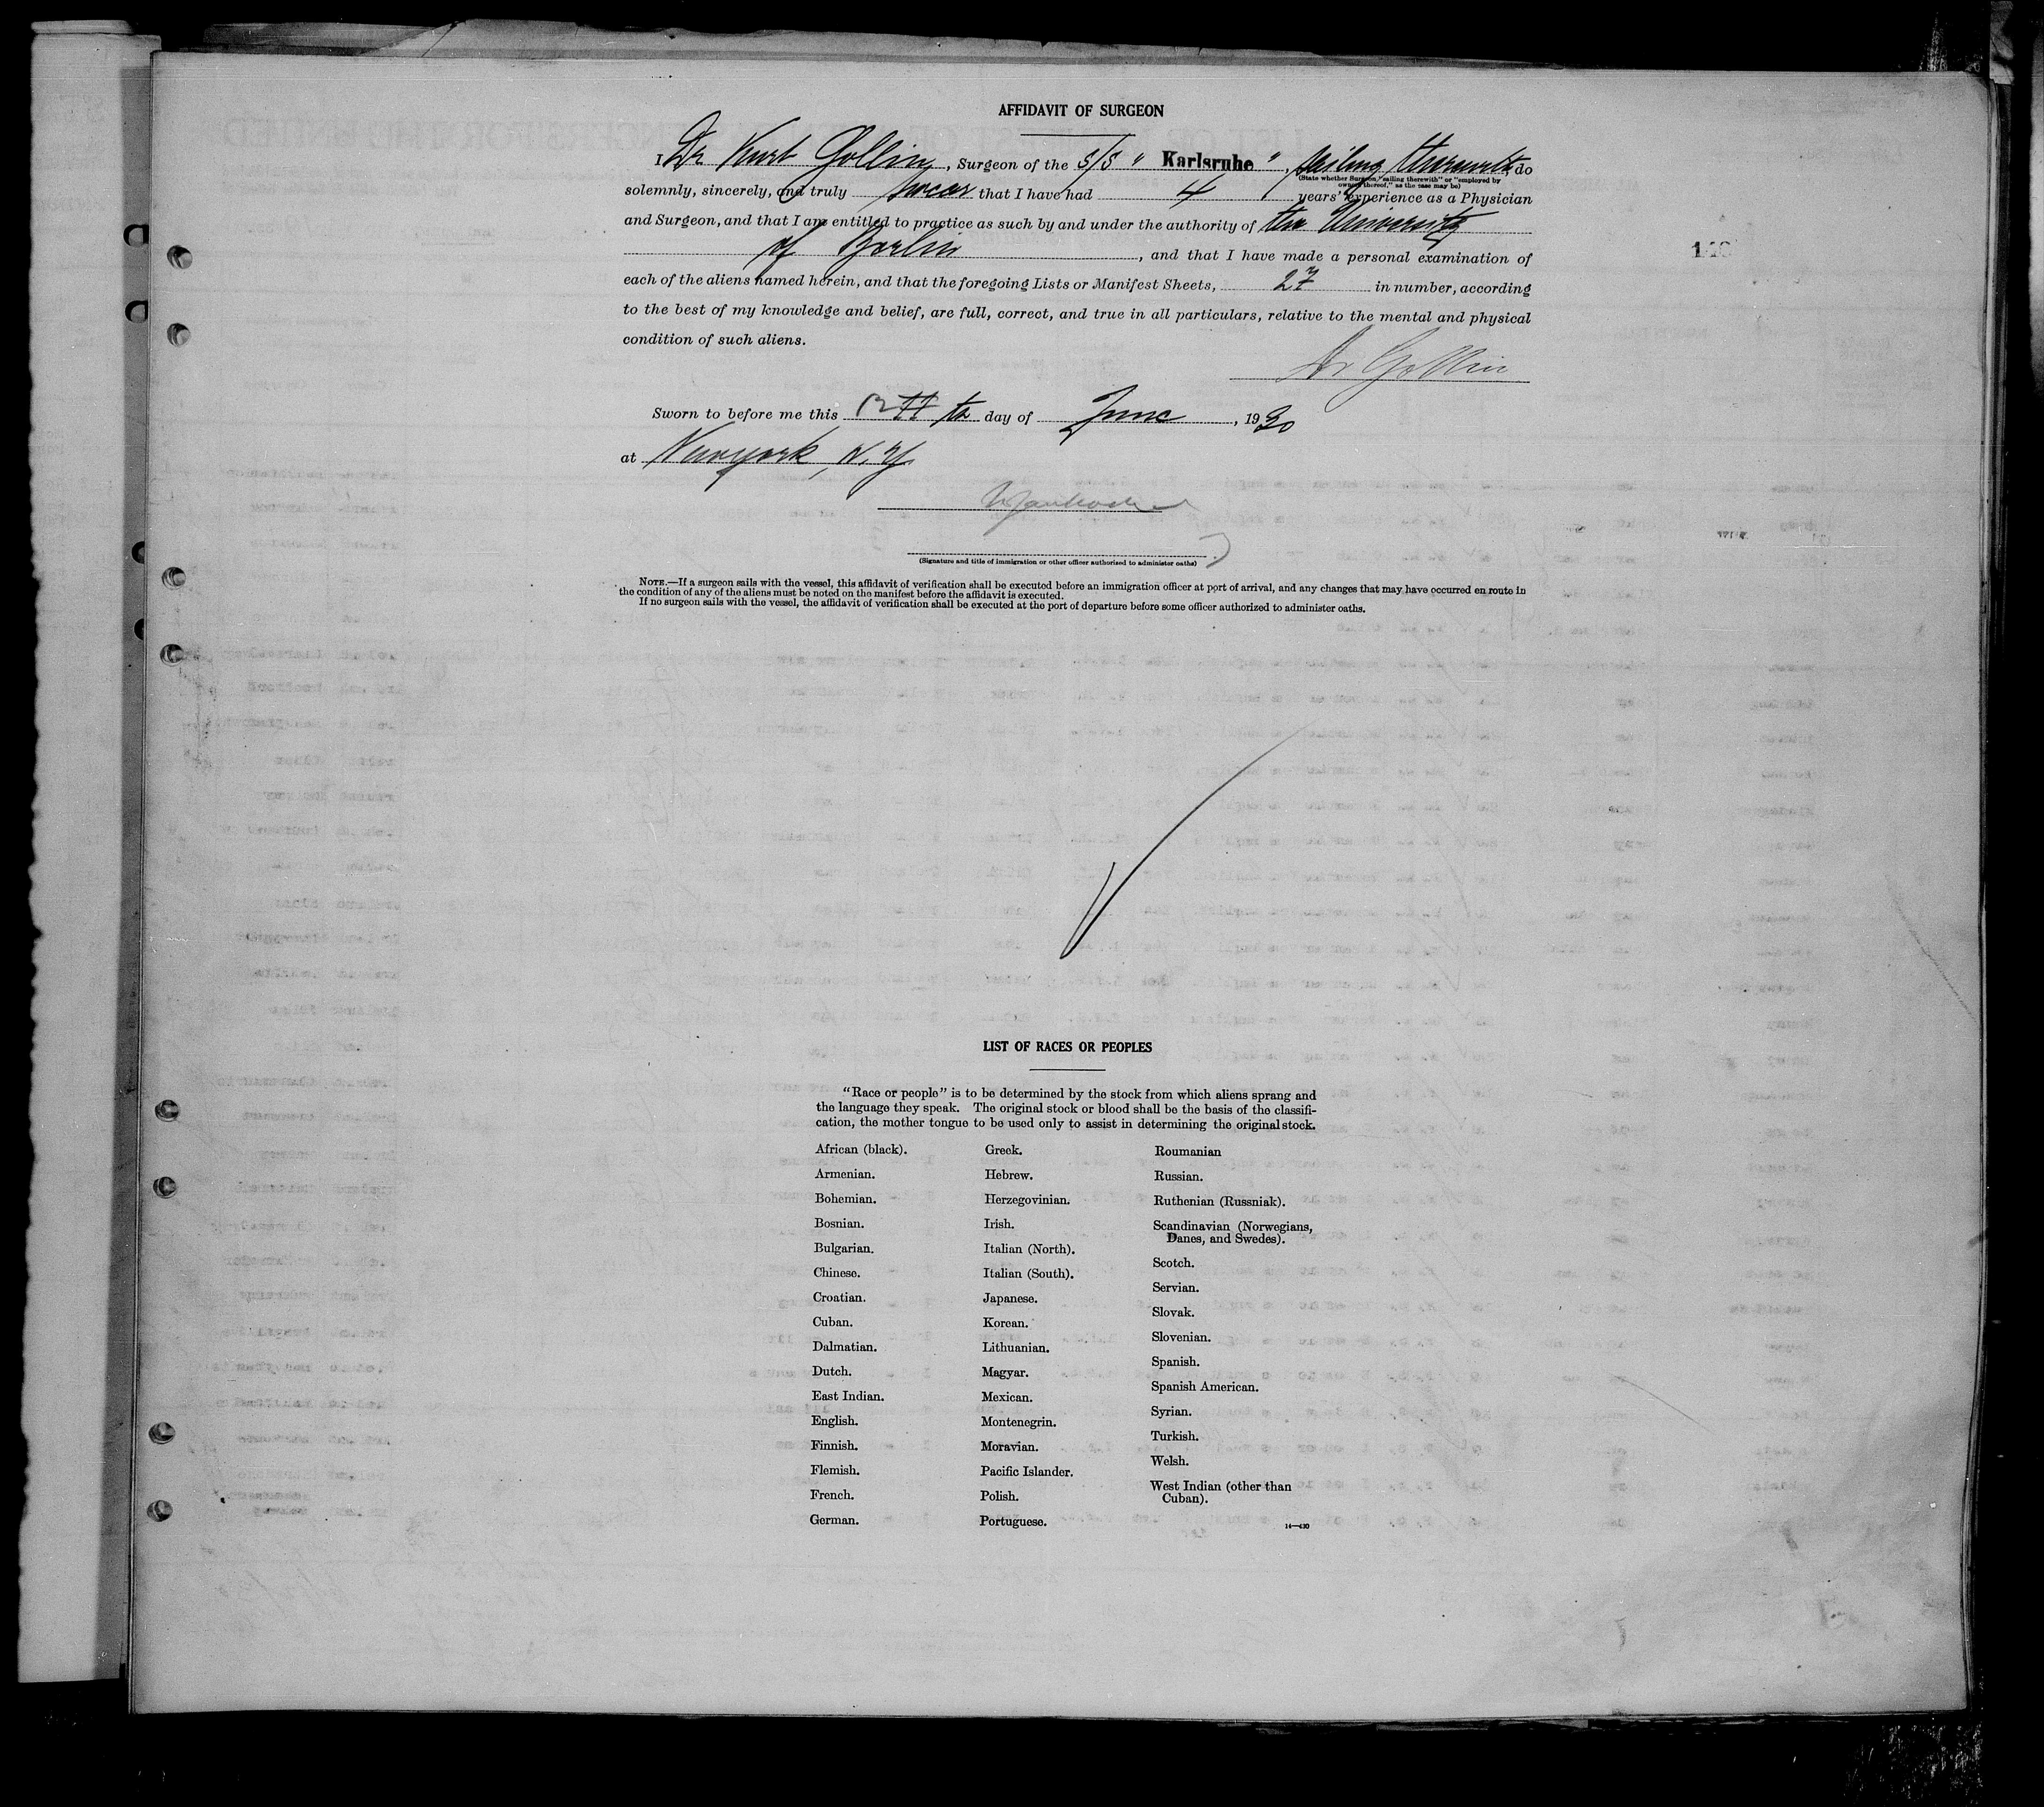 AFFIDAVIT OF SURGEON
I Dr Kurt Gollin, Surgeon of the S/S " Karlsruhe ", sailing therewith do
(State whether Surgeon, "sailing therewith" or "employed by
owners thereof," as the case may be)
solemnly, sincerely, and truly swear that I have had 4 years' experience as a Physician
and Surgeon, and that I am entitled to practice as such by and under the authority of the University
of Berlin, and that I have made a personal examination of
each of the aliens named herein, and that the foregoing Lists or Manifest Sheets, 27 in number, according
to the best of my knowledge and belief, are full, correct, and true in all particulars, relative to the mental and physical
condition of such aliens.
Dr Gollin
Sworn to before me this 12 th day of June, 1930
at Newyork, N.Y.
(Signature and title of immigration or other officer authorized to administer oaths)
NOTE.—If a surgeon sails with the vessel, this affidavit of verification shall be executed before an immigration officer at port of arrival, and any changes that may have occurred en route in
the condition of any of the aliens must be noted on the manifest before the affidavit is executed.
If no surgeon sails with the vessel, the affidavit of verification shall be executed at the port of departure before some officer authorized to administer oaths.
LIST OF RACES OR PEOPLES
"Race or people" is to be determined by the stock from which aliens sprang and
the language they speak. The original stock or blood shall be the basis of the classifi-
cation, the mother tongue to be used only to assist in determining the original stock.
African (black).
Armenian.
Bohemian.
Bosnian.
Bulgarian.
Chinese.
Croatian.
Cuban.
Dalmatian.
Dutch.
East Indian.
English.
Finnish.
Flemish.
French.
German.
Greek.
Hebrew.
Herzegovinian.
Irish.
Italian (North).
Italian (South).
Japanese.
Korean.
Lithuanian.
Magyar.
Mexican.
Montenegrin.
Moravian.
Pacific Islander.
Polish.
Portuguese.
Roumanian
Russian.
Ruthenian (Russniak).
Scandinavian (Norwegians,
Danes, and Swedes).
Scotch.
Servian.
Slovak.
Slovenian.
Spanish.
Spanish American.
Syrian.
Turkish.
Welsh.
West Indian (other than
Cuban).
14—430